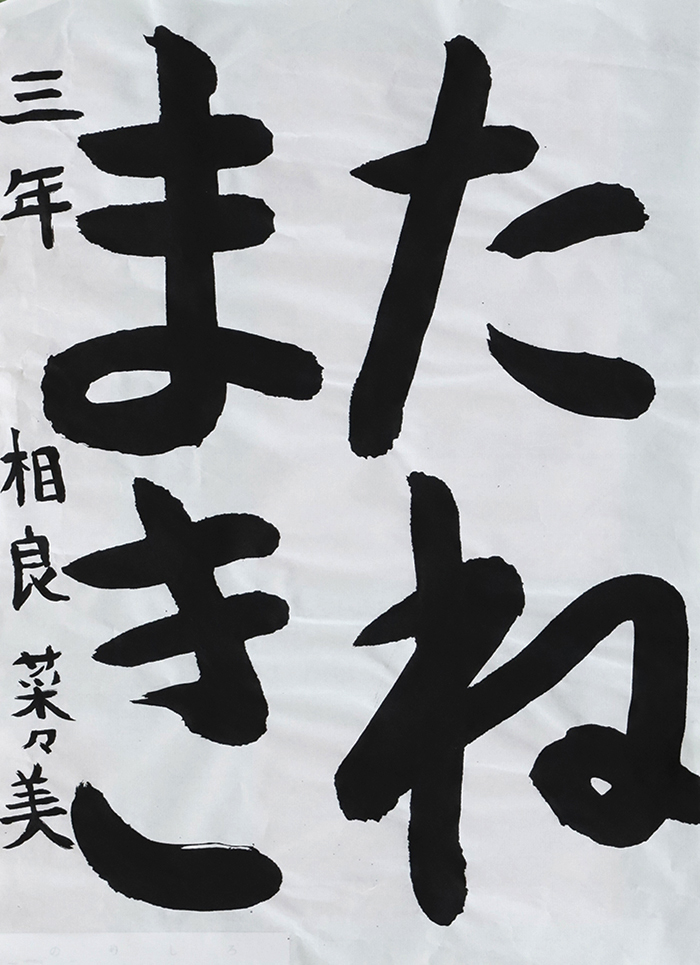 たね
まき
三年 相良 菜々美